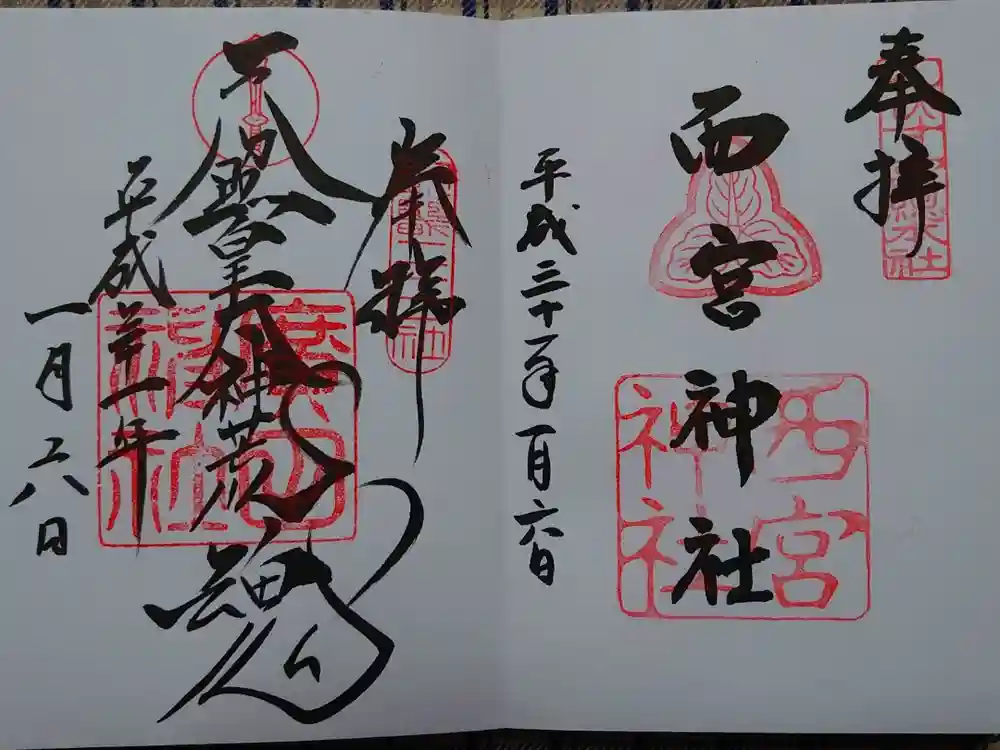 奉拝
西宮神社
西宮神社
平成三十一年一月六日
奉拝
天照皇大神荒魂
廣田神社
平成卅一年
一月六日